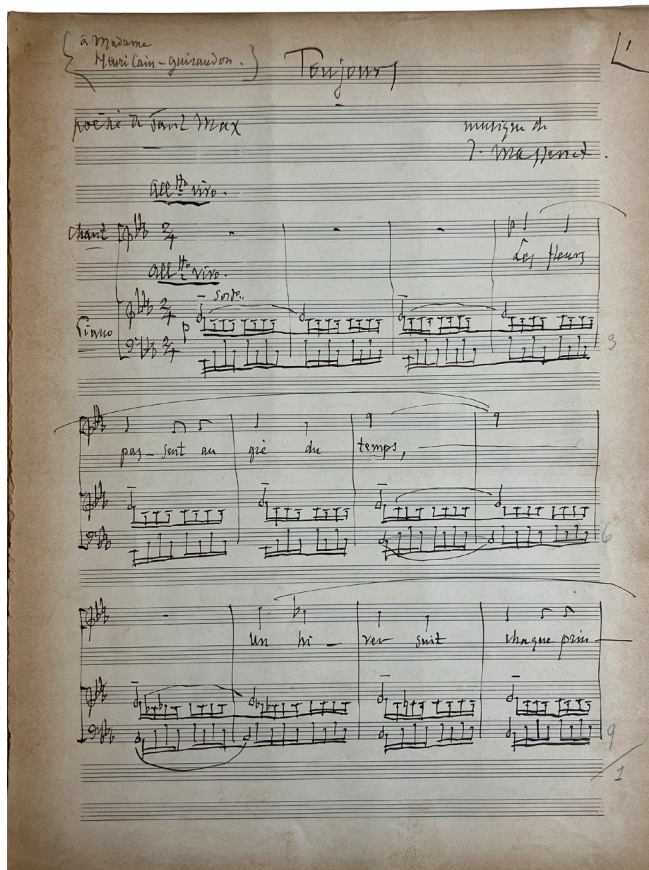 à Madame
Henri Cain-Guiraudon.
Toujours
1
poésie de Paul Max
musique de
J. Massenet.
All^tto vivo.
Chant
2/4
Les fleurs
All^tto vivo.
Piano
2/4
p
3
pas-sent au gré du temps,
6
Un hi-ver suit chaque prin-
9
1